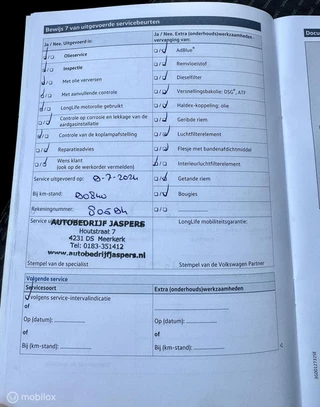 Bewijs 7 van uitgevoerde servicebeurten
Ja / Nee, Uitgevoerd is:
Olieservice
Inspectie
Met olie verversen
Met aanvullende controle
LongLife motorolie gebruikt
Controle op corrosie en lekkage van de aardgasinstallatie
Controle van de koplampafstelling
Reparatieadvies
Wens klant
(ook op de werkorder vermelden)
Service uitgevoerd op: 8-7-2024
Bij km-stand: 80840
Rekeningnummer: 80584
Service
AUTOBEDRIJF JASPERS
Houtstraat 7
4231 DS Meerkerk
Tel: 0183-351412
www.autobedrijfjaspers.nl
Stempel van de specialist
Ja / Nee, Extra (onderhouds)werkzaamheden - vervanging van:
AdBlue®
Remvloeistof
Dieselfilter
Versnellingsbakolie: DSG®, ATF
Haldex-koppeling; olie
Geribde riem
Luchtfilterelement
Flesje met bandenafdichtmiddel
Interieurluchtfilterelement
Getande riem
Bougies
LongLife mobiliteitsgarantie:
Stempel van de Volkswagen Partner
Volgende service
Servicesoort
volgens service-intervalindicatie
of
Op (datum):
of
Bij (km-stand):
Extra (onderhouds)werkzaamheden
Op (datum):
of
Bij (km-stand):
Docu
mobilox